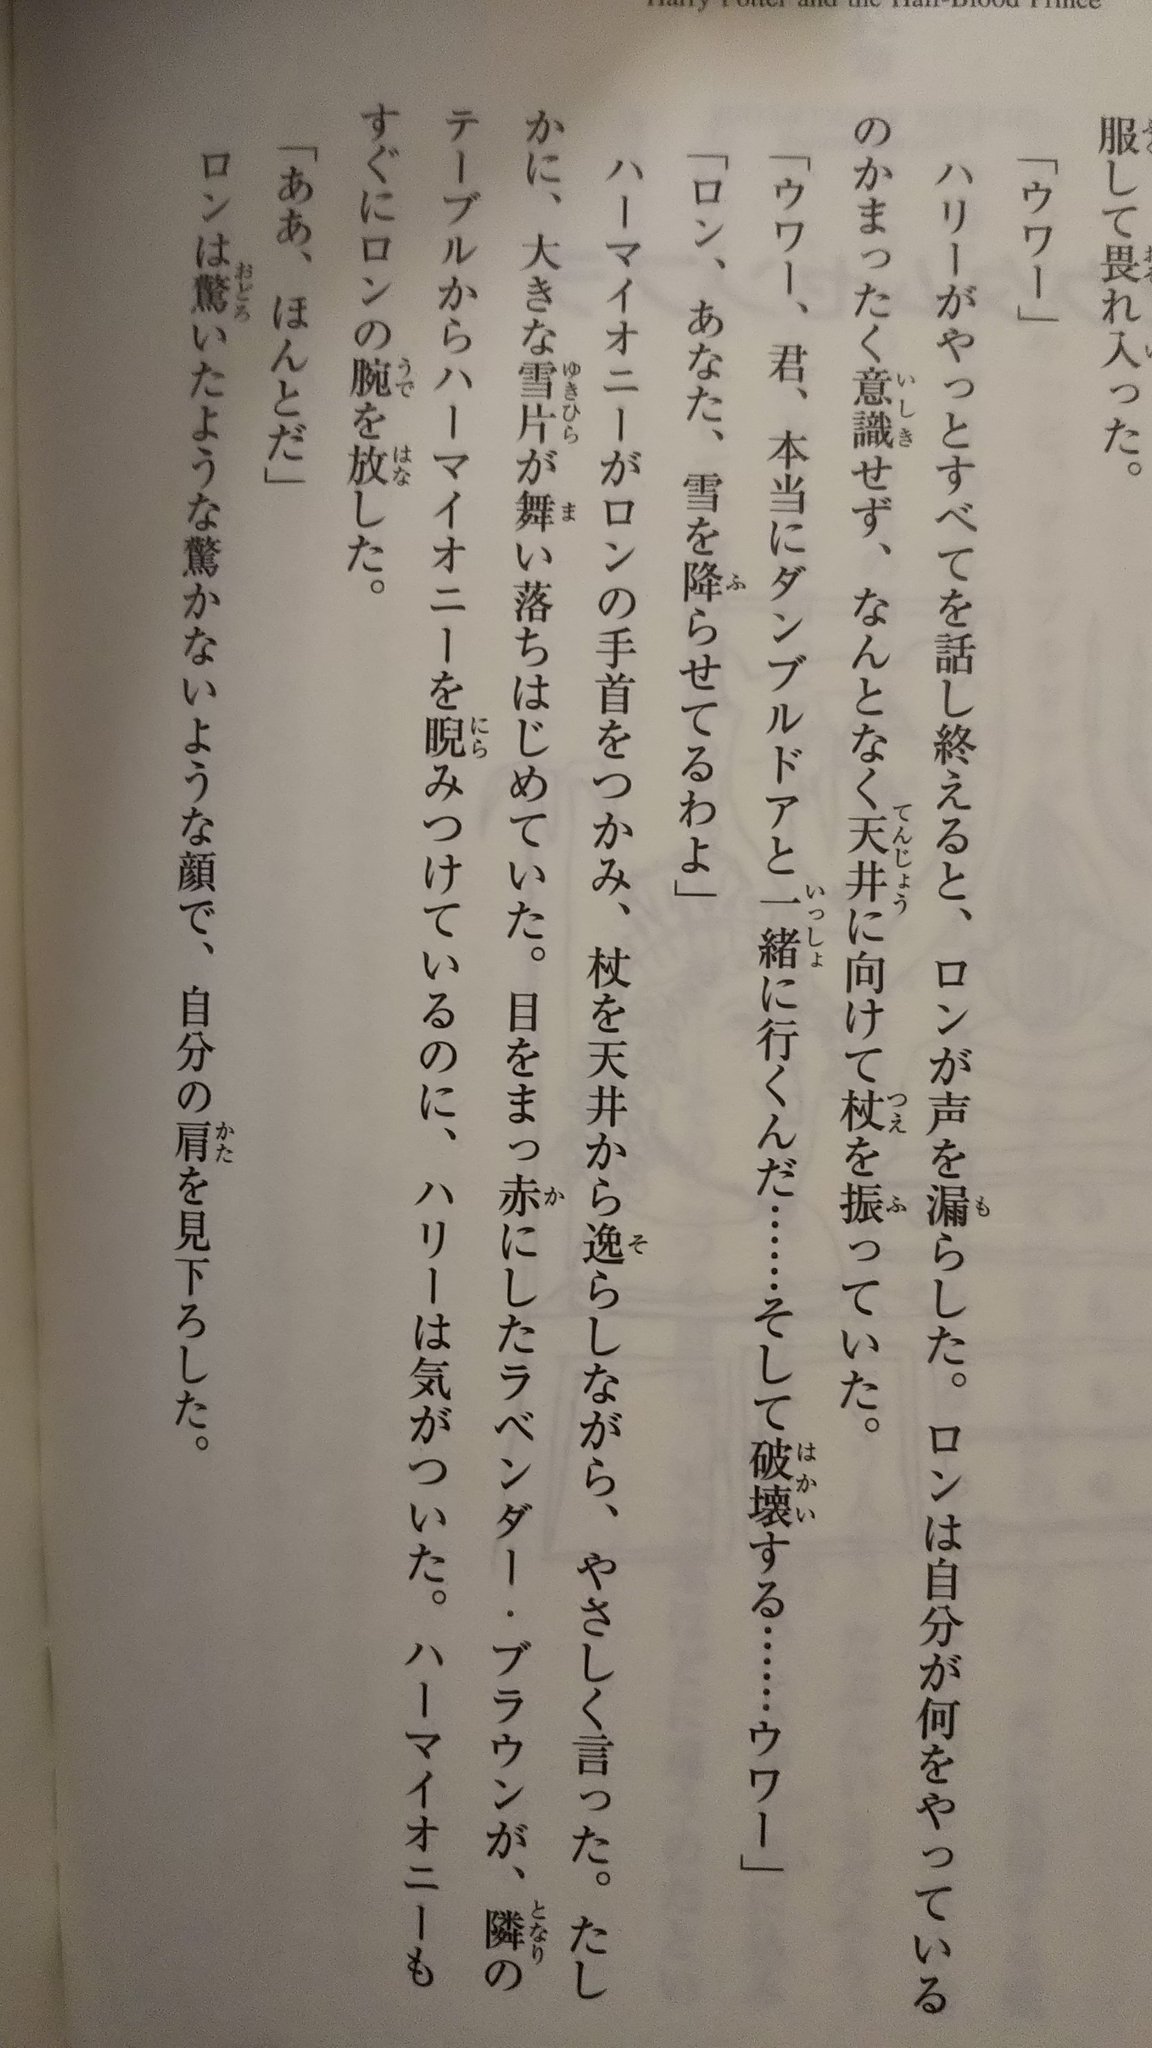 Harry Potter and the Half-Blood Prince
服して畏れ入った。
「ウワー」
ハリーがやっとすべてを話し終えると、ロンが声を漏らした。ロンは自分が何をやっている
のかまったく意識せず、なんとなく天井に向けて杖を振っていた。
「ウワー、君、本当にダンブルドアと一緒に行くんだ……そして破壊する……ウワー」
「ロン、あなた、雪を降らせてるわよ」
ハーマイオニーがロンの手首をつかみ、杖を天井から逸らしながら、やさしく言った。たし
かに、大きな雪片が舞い落ちはじめていた。目をまっ赤にしたラベンダー・ブラウンが、隣の
テーブルからハーマイオニーを睨みつけているのに、ハリーは気がついた。ハーマイオニーも
すぐにロンの腕を放した。
「ああ、ほんとだ」
ロンは驚いたような驚かないような顔で、自分の肩を見下ろした。